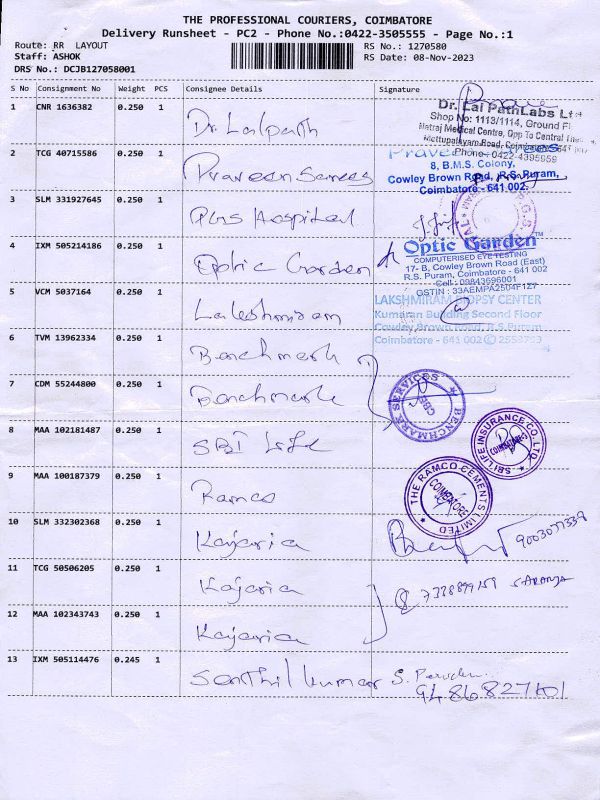 THE PROFESSIONAL COURIERS, COIMBATORE
Delivery Runsheet - PC2 - Phone No.:0422-3505555 - Page No.:1
Route: RR LAYOUT
RS No.: 1270580
Staff: ASHOK
RS Date: 08-Nov-2023
DRS No.: DCJB127058001
S No Consignment No Weight PCS Consignee Details Signature
1 CNR 1636382 0.250 1 Dr. Lalpath
Dr. Lal PathLabs Ltd
Shop No: 1113/1114, Ground Fl
Natraj Medical Centre, Opp To Central
Mettupalayam Road, Coimbatore-641
Phone: 0422-4395959
2 TCG 40715586 0.250 1 Praveen Sarees
Praveen Sarees
8, B.M.S. Colony,
Cowley Brown Road, R.S.Puram,
Coimbatore - 641 002.
3 SLM 331927645 0.250 1 Hospital
4 IXM 505214186 0.250 1 Optic Garden
Optic Garden™
COMPUTERISED EYE TESTING
17- B, Cowley Brown Road (East)
R.S. Puram, Coimbatore - 641 002
Cell : 09843696001
GSTIN : 33AEMPA2504F1Z7
5 VCM 5037164 0.250 1
LAKSHMIRAM BIOPSY CENTER
Kumaran Building Second Floor
Cowley Brown Road, R.S.Puram
Coimbatore - 641 002
6 TVM 13962334 0.250 1 Benchmark
7 CDM 55244800 0.250 1 Benchmark
BENCHMARK SERVICES
CBE
8 MAA 102181487 0.250 1 SBI Life
SBI LIFE INSURANCE CO. LTD.
COIMBATORE
9 MAA 100187379 0.250 1 Ramco
THE RAMCO CEMENTS LIMITED
COIMBATORE
10 SLM 332302368 0.250 1 Kajaria
11 TCG 50506205 0.250 1 Kajaria
SARANYA
12 MAA 102343743 0.250 1 Kajaria
13 IXM 505114476 0.245 1 Senthil kumar